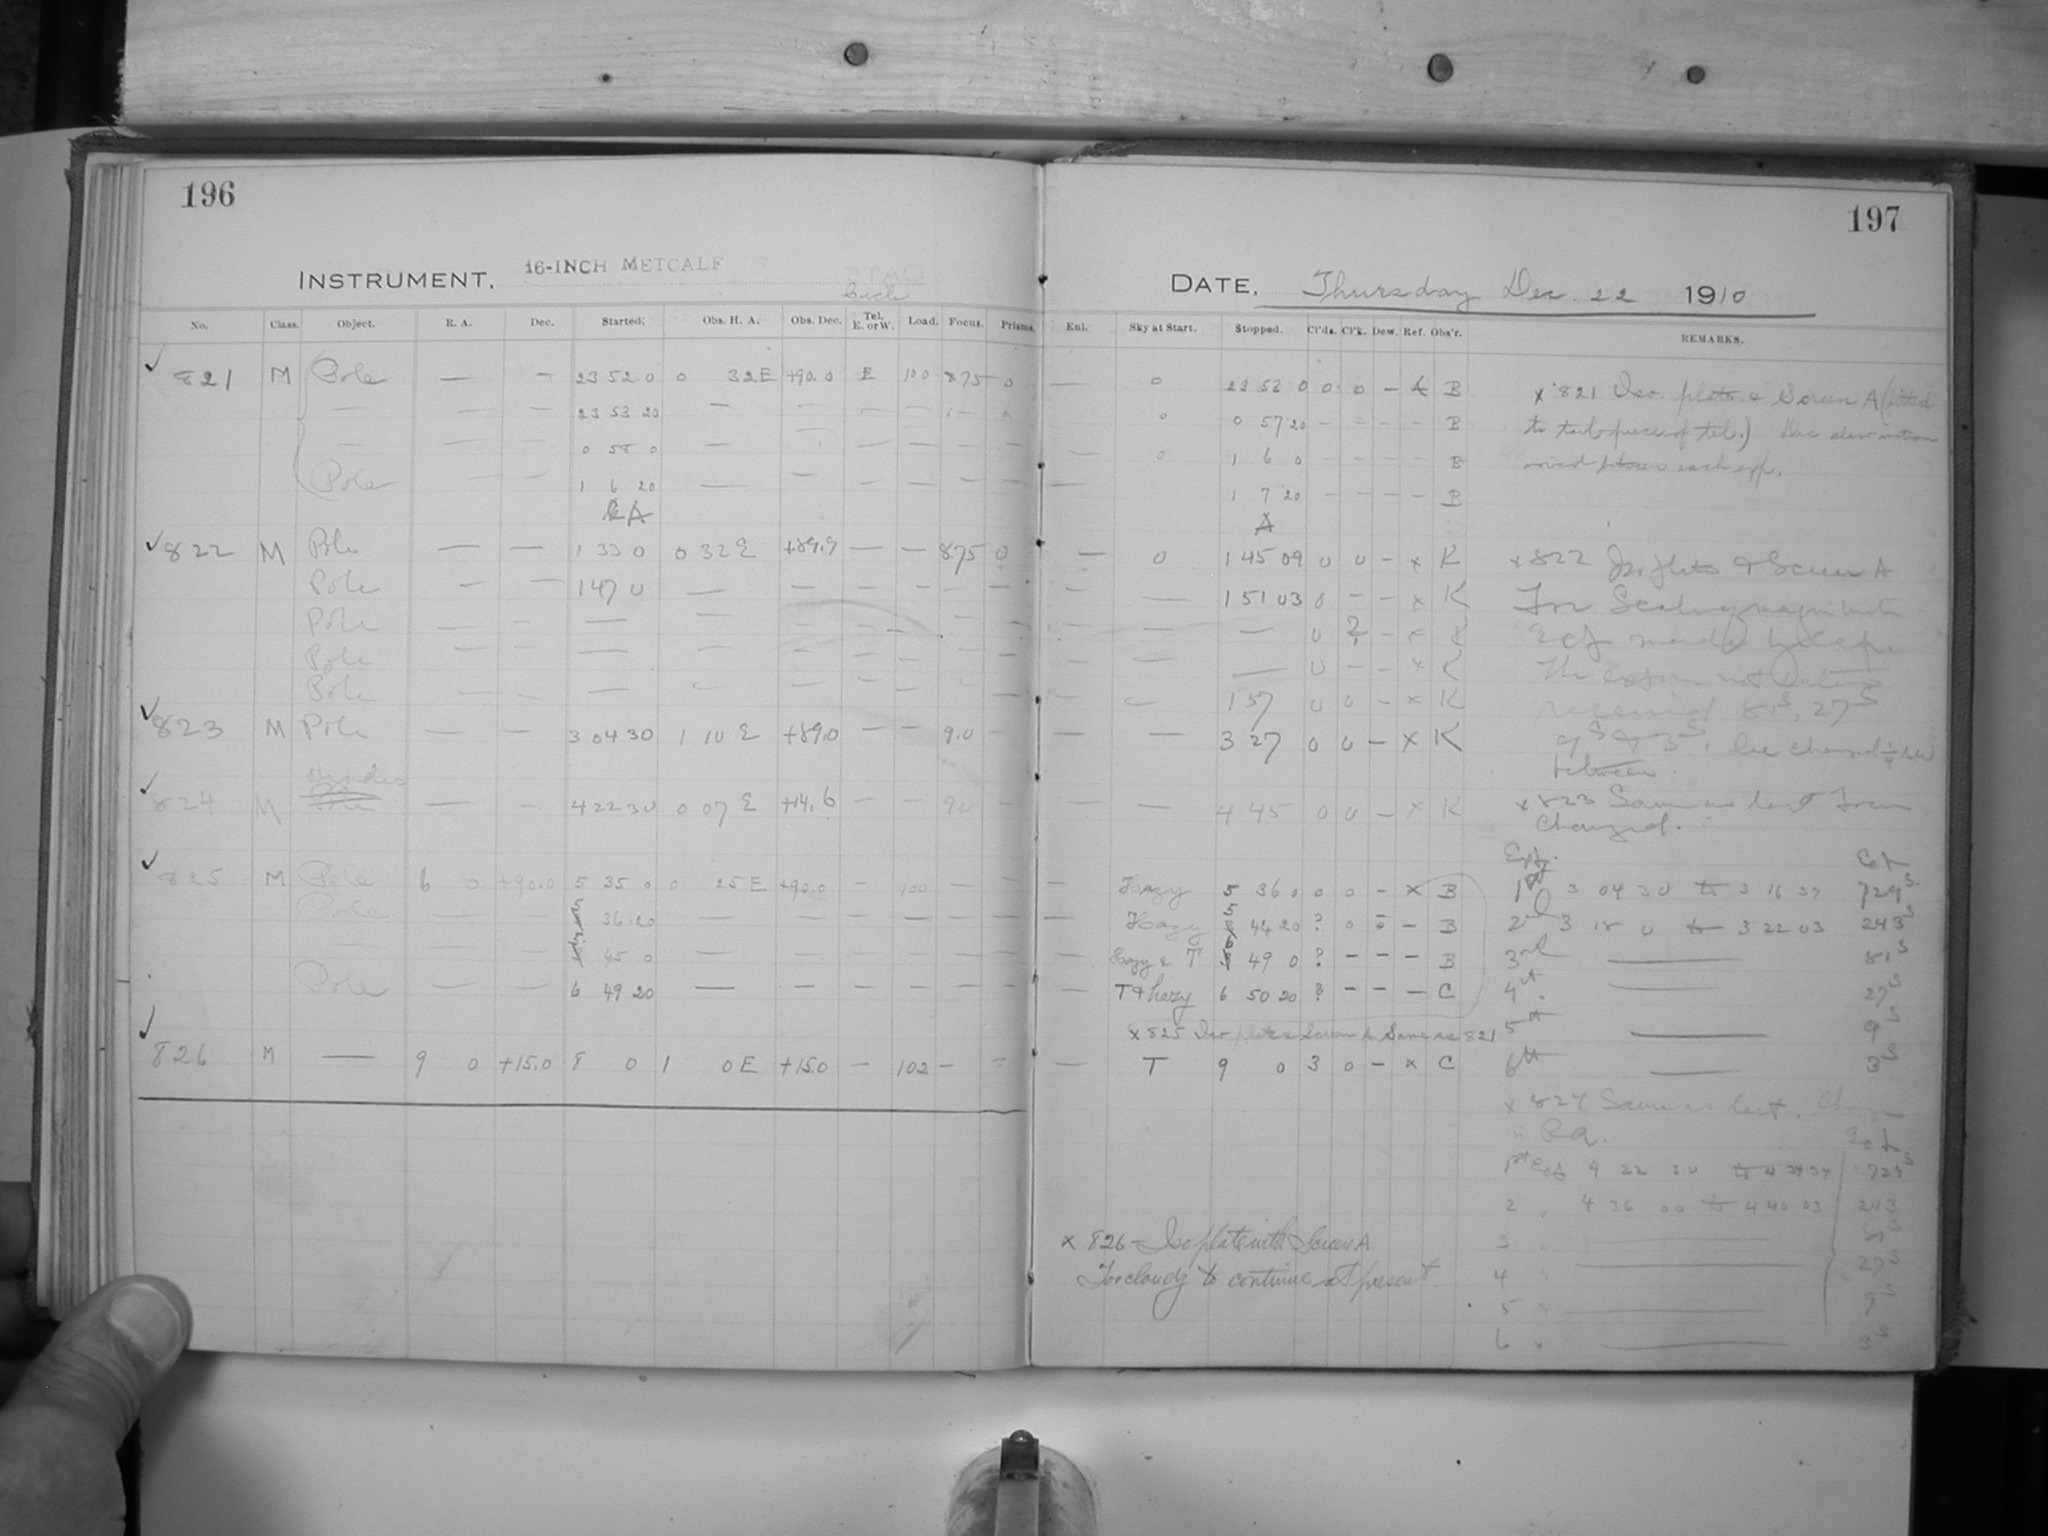 196
INSTRUMENT, 16-INCH METCALF
No. Class. Object. R. A. Dec. Started. Obs. H. A. Obs. Dec. Tel. E. or W. Load. Focus. Prisms.
821 M Pole — — 23 52 0 0 32 E +90.0 E 100 875 0
— — — 23 53 20 — — — — — —
— — — 0 58 0 — — — — — —
Pole — — 1 6 20 — — — — — —
A
822 M Pole — — 1 33 0 0 32 E +89.9 — — 875 0
Pole — — 1 47 0 — — — — — —
Pole — — — — — — — — —
Pole — — — — — — — — —
Pole — — — — — — — — —
823 M Pole — — 3 04 30 1 10 E +89.0 — — 9.0 —
824 M — — 4 22 30 0 07 E +14.6 — — 90 —
825 M Pole 6 0 +90.0 5 35 0 0 25 E +90.0 — 100 — —
Pole — — 36 20 — — — — — —
— — — 45 0 — — — — — —
Pole — — 6 49 20 — — — — — —
826 M — 9 0 +15.0 8 0 1 0 E +15.0 — 102 — —
197
DATE, Thursday Dec. 22 1910
Enl. Sky at Start. Stopped. Cl'ds. Cl'k. Dew. Ref. Obs'r. REMARKS.
— 0 23 53 0 0 0 — x B
0 0 57 20 — — — — B
— 0 1 6 0 — — — — B
1 7 20 — — — — B
A
— 0 1 45 09 0 0 — x K
— 1 51 03 0 — — x K
— — 0 ? — x K
— — 0 — — x K
— 1 57 0 0 — x K
— 3 27 0 0 — x K
— 4 45 0 0 — x K
— Hazy 5 36 0 0 0 — x B
— Hazy 5 44 20 ? 0 — — B
— Hazy & T 49 0 ? — — — B
— T & hazy 6 50 20 ? — — — C
x 825 Iso plate & Screen A Same as 821
— T 9 0 3 0 — x C
x 826 — Iso plate with Screen A
Too cloudy to continue at present.
x 821 Iso. plate & Screen A (fitted
to tail piece of tel.) Dec slow motion
moved between each exp.
x 822 Iso plate & Screen A
For Scale of magnitudes
The
81s, 27s
9s & 3s. Dec changed 1/4 rev
between.
x 823 Same as last Focus
Changed.
Exp. Exp
1st 3 04 30 to 3 16 39 729s
2nd 3 18 0 to 3 22 03 243s
3rd — 81s
4th — 27s
5th — 9s
6th — 3s
x 824 Same as last.
Exp
1st Exp 4 22 30 to 4 34 39 729s
2 " 4 36 00 to 4 40 03 243
3 " 81s
4 " — 27s
5 " — 9s
6 " — 3s